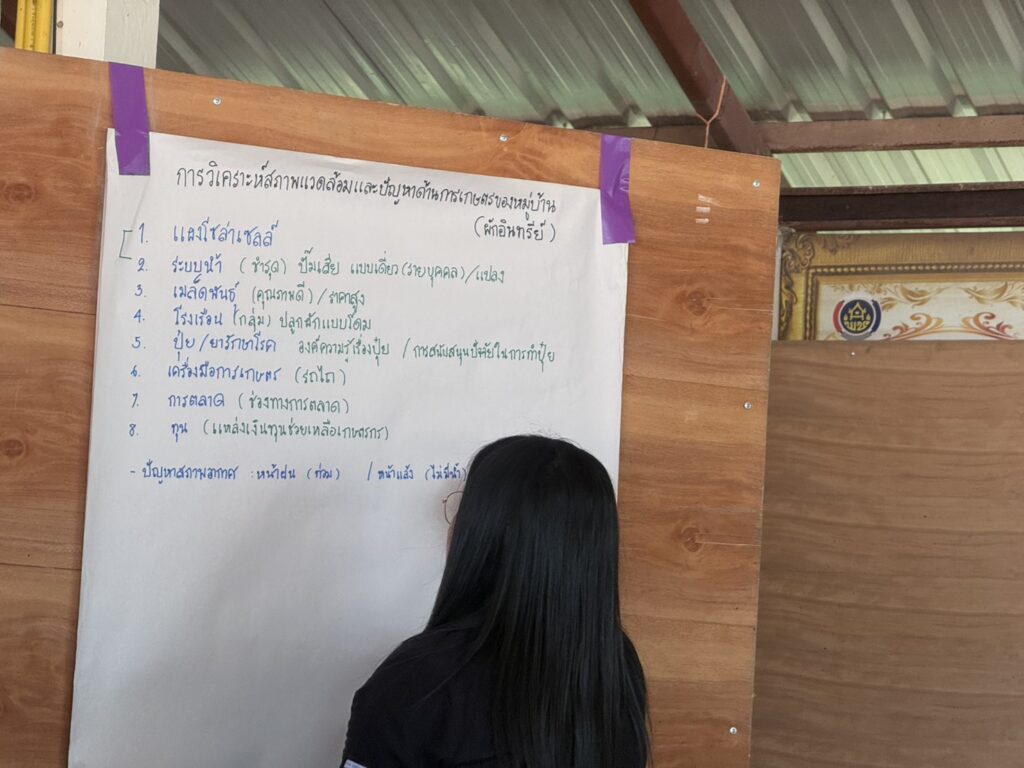 การวิเคราะห์สภาพแวดล้อมและปัญหาด้านการเกษตรของหมู่บ้าน
(ผักอินทรีย์)
1. แผงโซล่าเซลล์
2. ระบบน้ำ (ชำรุด) ปั๊มเสีย แบบเดี่ยว(รายบุคคล)/แปลง
3. เมล็ดพันธุ์ (คุณภาพดี) / ราคาสูง
4. โรงเรือน (กลุ่ม) ปลูกผักแบบโดม
5. ปุ๋ย / ยารักษาโรค องค์ความรู้เรื่องปุ๋ย / การสนับสนุนปัจจัยในการทำปุ๋ย
6. เครื่องมือการเกษตร (รถไถ)
7. การตลาด (ช่องทางการตลาด)
8. ทุน (แหล่งเงินทุนช่วยเหลือเกษตรกร)
- ปัญหาสภาพอากาศ : หน้าฝน (ท่วม) / หน้าแล้ง (ไม่มีน้ำ)